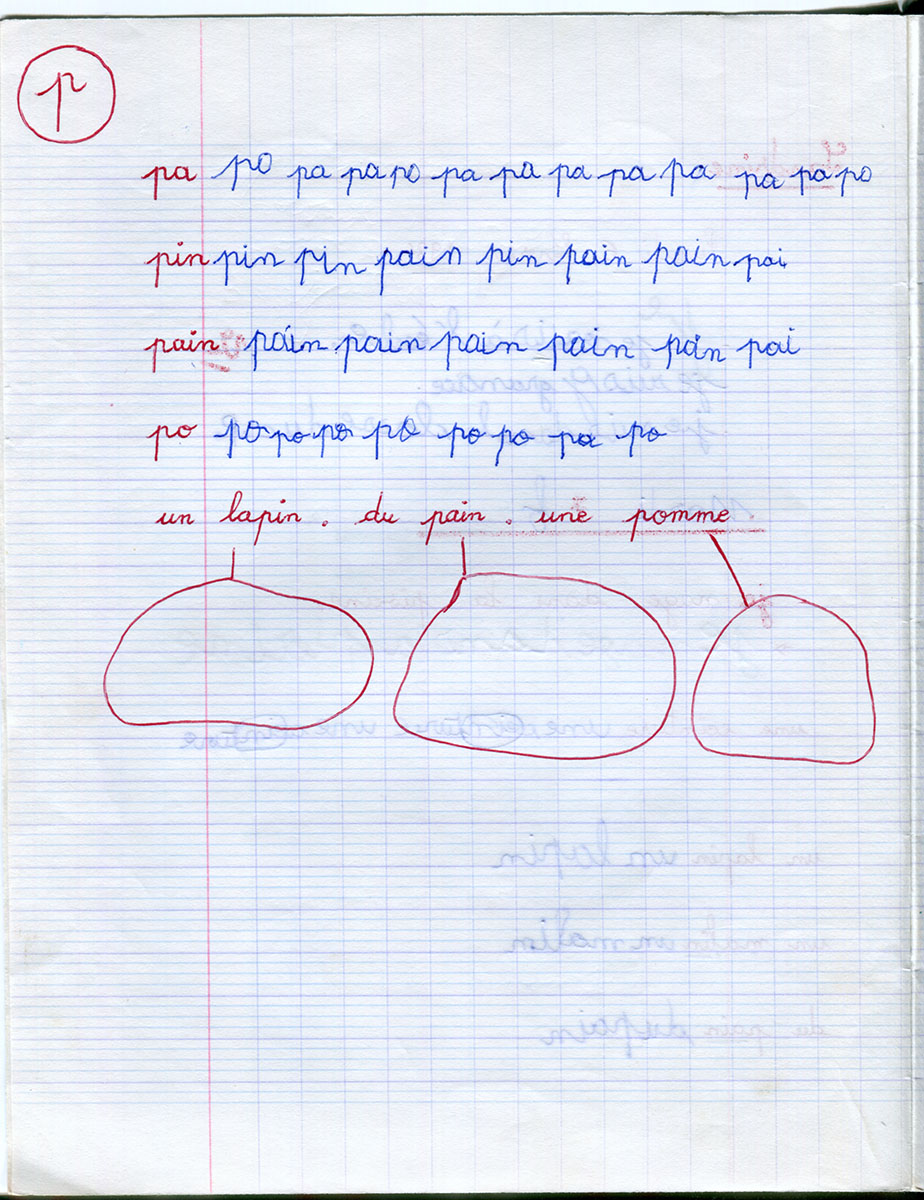 p
pa po pa pa po pa pa pa pa pa pa pa po
pin pin pin pain pin pain pain pai
pain pain pain pain pain pan pai
po po po po po po po pa po
un lapin. du pain. une pomme